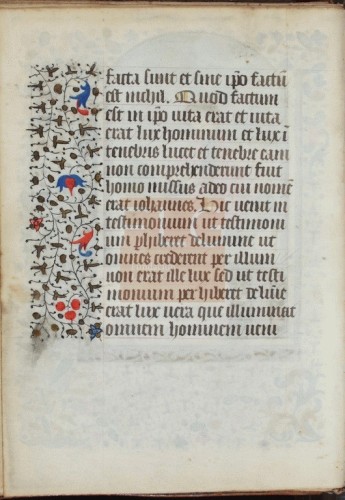 facta sunt et sine ipo factū
est nichil. Quod factum
est in ipo uita erat et uita
erat lux hominum et lux ī
tenebris lucet et tenebre eam
non comprehenderunt fuit
homo missus adeo cui nomen
erat iohannes. Hic uenit in
testimonium ut testimoni
um phiberet delumine ut
omnes crederent per illum
non erat ille lux sed ut testi
monium per hiberet de lūīe
erat lux uera que illuminat
omnem hominem ueni